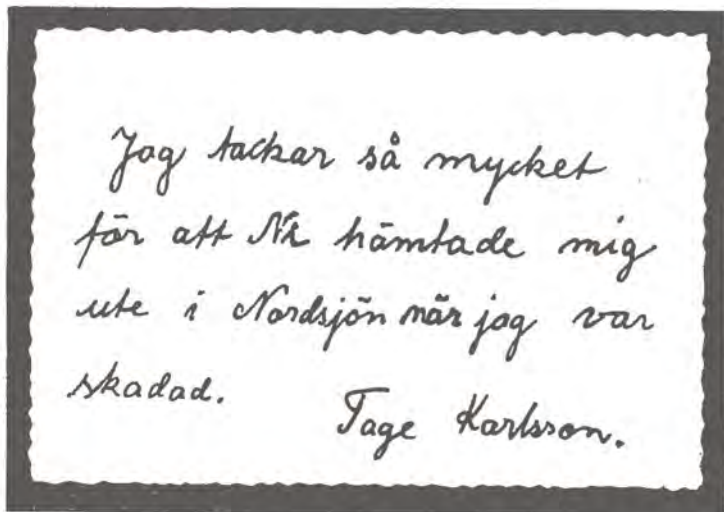 Jag tackar så mycket
för att Ni hämtade mig
ute i Nordsjön när jag var
skadad.
Tage Karlsson.